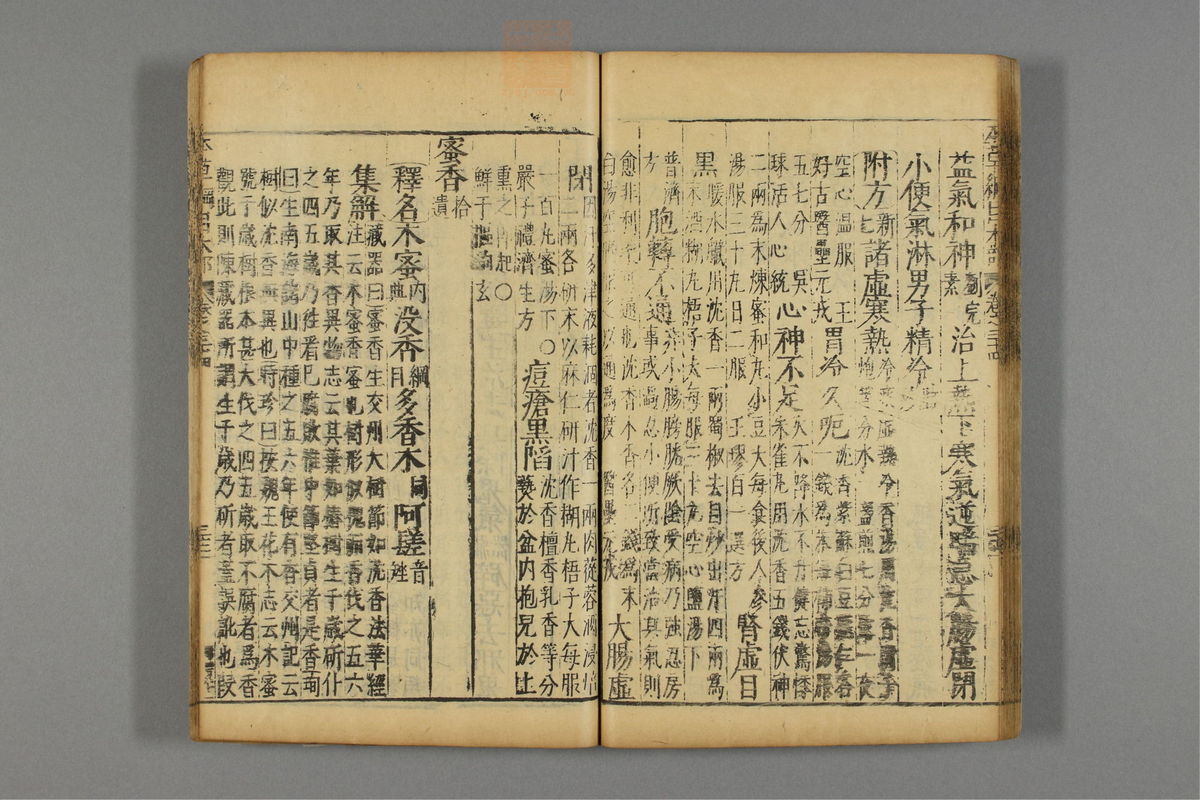 本草綱目木部 卷之三十四
益氣和神劉完素治上熱下寒氣逆喘急大腸虛閉
小便氣淋男子精冷
附方新七諸虛寒熱
空心溫服王好古醫壘元戎胃冷久呃沈香紫蘇白豆蔻
五七分吳球活人心統心神不足火不降水不升健忘驚悸朱雀丸用沈香五錢伏神
二兩爲末煉蜜和丸小豆大每食後人參湯服三十丸日二服王璆百一選方腎虛目
黑暖水臟用沈香一兩蜀椒去目炒出汗四兩爲末酒糊丸梧子大每服三十丸空心鹽湯下
普濟方胞轉不通非小腸膀胱厥陰受病乃強忍房事或過忍小便所致當治其氣則
愈非利藥可通也沈香木香各二錢爲末白湯空腹服之以通爲度醫壘元戎大腸虛
閉因汗多津液耗涸者沈香一兩肉蓯蓉酒浸焙二兩各研末以麻仁研汁作糊丸梧子大每服
一百丸蜜湯下嚴子禮濟生方○痘瘡黑陷沈香檀香乳香等分爇於盆内抱兒於上
熏之即起○鮮于樞鈎玄
蜜香拾遺
釋名木蜜内典没香綱目多香木同阿𣛰音𨒬
集解藏器曰蜜香生交州大樹節如沈香法華經
注云木蜜香蜜也樹形似槐而香伐之五六
年乃取其香異物志云其葉如椿樹生千歲斫仆
之四五歲乃往看已腐敗惟中節堅貞者是香珣
曰生南海諸山中種之五六年便有香交州記云
樹似沈香無異也時珍曰按魏王花木志云木蜜
號千歲樹根本甚大伐之四五歲取不腐者爲香
觀此則陳藏器所謂生千歲乃斫者葢誤訛也段
本草綱目木部 卷之三十四